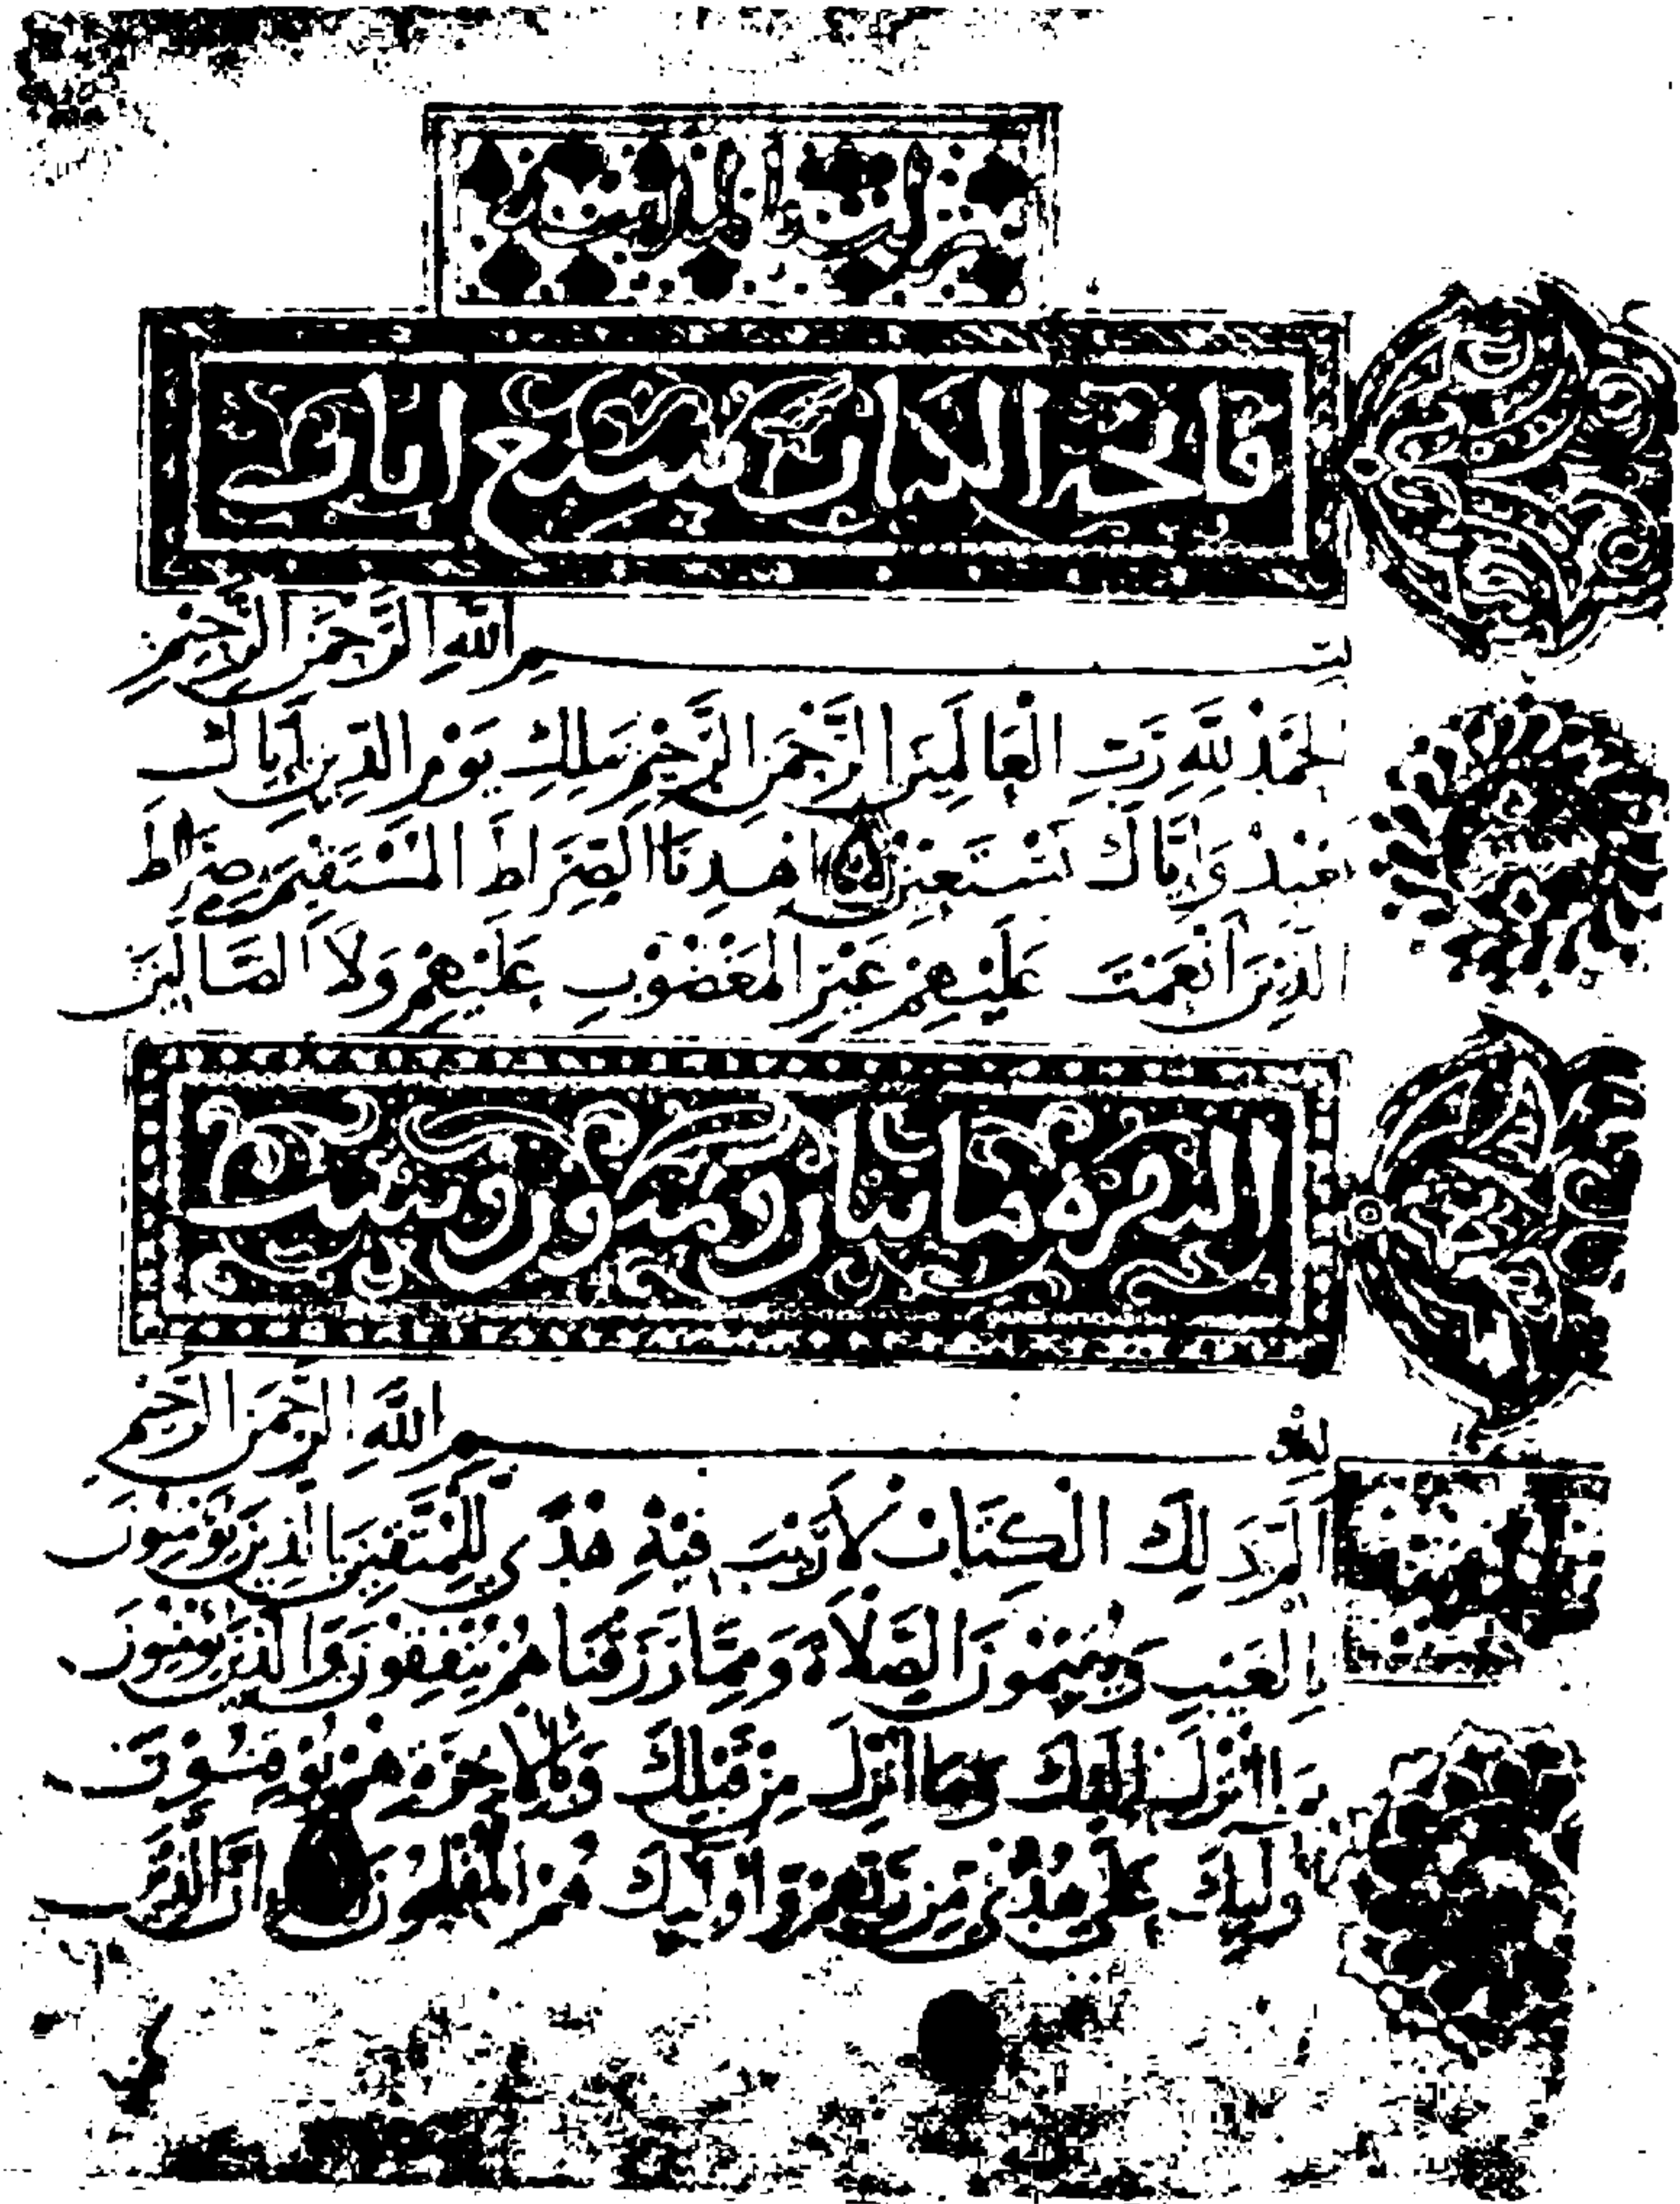 فاتحة الكتاب سبع ايات
بِسْمِ اللَّهِ الرَّحْمَنِ الرَّحِيمِ
الحَمْدُ لِلَّهِ رَبِّ الْعَالَمِينَ الرَّحْمَنِ الرَّحِيمِ مَلِكِ يَوْمِ الدِّينِ إِيَّاكَ
نَعْبُدُ وَإِيَّاكَ نَسْتَعِينُ اهْدِنَا الصِّرَاطَ الْمُسْتَقِيمَ صِرَاطَ
الَّذِينَ أَنْعَمْتَ عَلَيْهِمْ غَيْرِ الْمَغْضُوبِ عَلَيْهِمْ وَلَا الضَّالِّينَ
البقرة مايتان وثمنون وست
بِسْمِ اللَّهِ الرَّحْمَنِ الرَّحِيمِ
الَمَ ذَلِكَ الْكِتَابُ لَا رَيْبَ فِيهِ هُدًى لِلْمُتَّقِينَ الَّذِينَ يُؤْمِنُونَ
بِالْغَيْبِ وَيُقِيمُونَ الصَّلَاةَ وَمِمَّا رَزَقْنَاهُمْ يُنْفِقُونَ وَالَّذِينَ يُؤْمِنُونَ
بِمَا أُنْزِلَ إِلَيْكَ وَمَا أُنْزِلَ مِنْ قَبْلِكَ وَبِالْآخِرَةِ هُمْ يُوقِنُونَ
أُولَئِكَ عَلَى هُدًى مِنْ رَبِّهِمْ وَأُولَئِكَ هُمُ الْمُفْلِحُونَ إِنَّ الَّذِينَ